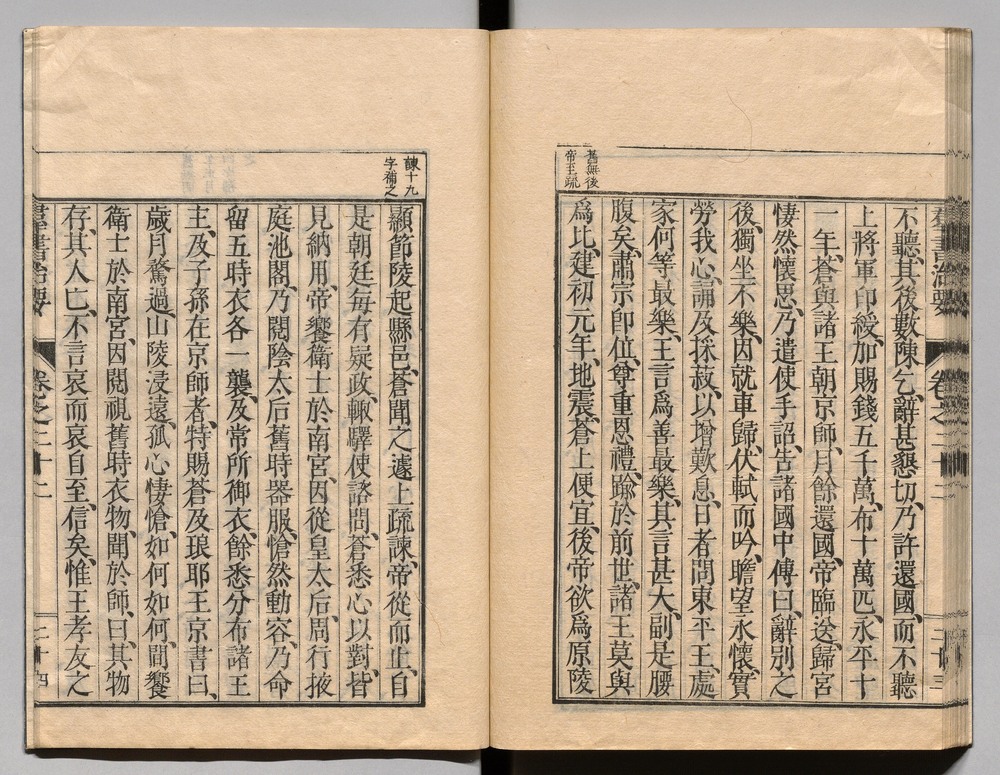 羣書治要
卷之二十二
二十三
不聽、其後數陳乞、辭甚懇切、乃許還國、而不聽
上將軍印綬、加賜錢五千萬、布十萬匹、永平十
一年、蒼與諸王朝京師、月餘還國、帝臨送歸宮
悽然懷思、乃遣使手詔、告諸國中傅曰、辭別之
後、獨坐不樂、因就車歸、伏軾而吟、瞻望永懷、實
勞我心、誦及採菽、以增歎息、日者問東平王、處
家何等最樂、王言爲善最樂、其言甚大、副是腰
腹矣、肅宗卽位、尊重恩禮、踰於前世、諸王莫與
爲比、建初元年、地震、蒼上便宜、後帝欲爲原陵
舊無後
帝至疏
諫十九
字補之
顯節陵起縣邑、蒼聞之遽上疏諫、帝從而止、自
是朝廷每有疑政、輙驛使諮問、蒼悉心以對、皆
見納用、帝饗衛士於南宮、因從皇太后、周行掖
庭池閣、乃閱陰太后舊時器服、愴然動容、乃命
留五時衣各一襲、及常所御衣、餘悉分布諸王
主、及子孫在京師者、特賜蒼及琅耶王京書曰、
歲月騖過、山陵浸遠、孤心悽愴、如何如何、間饗
衛士於南宮、因閱視舊時衣物、聞於師、曰、其物
存、其人亡、不言哀而哀自至、信矣、惟王孝友之
羣書治要
卷之二十二
二十四